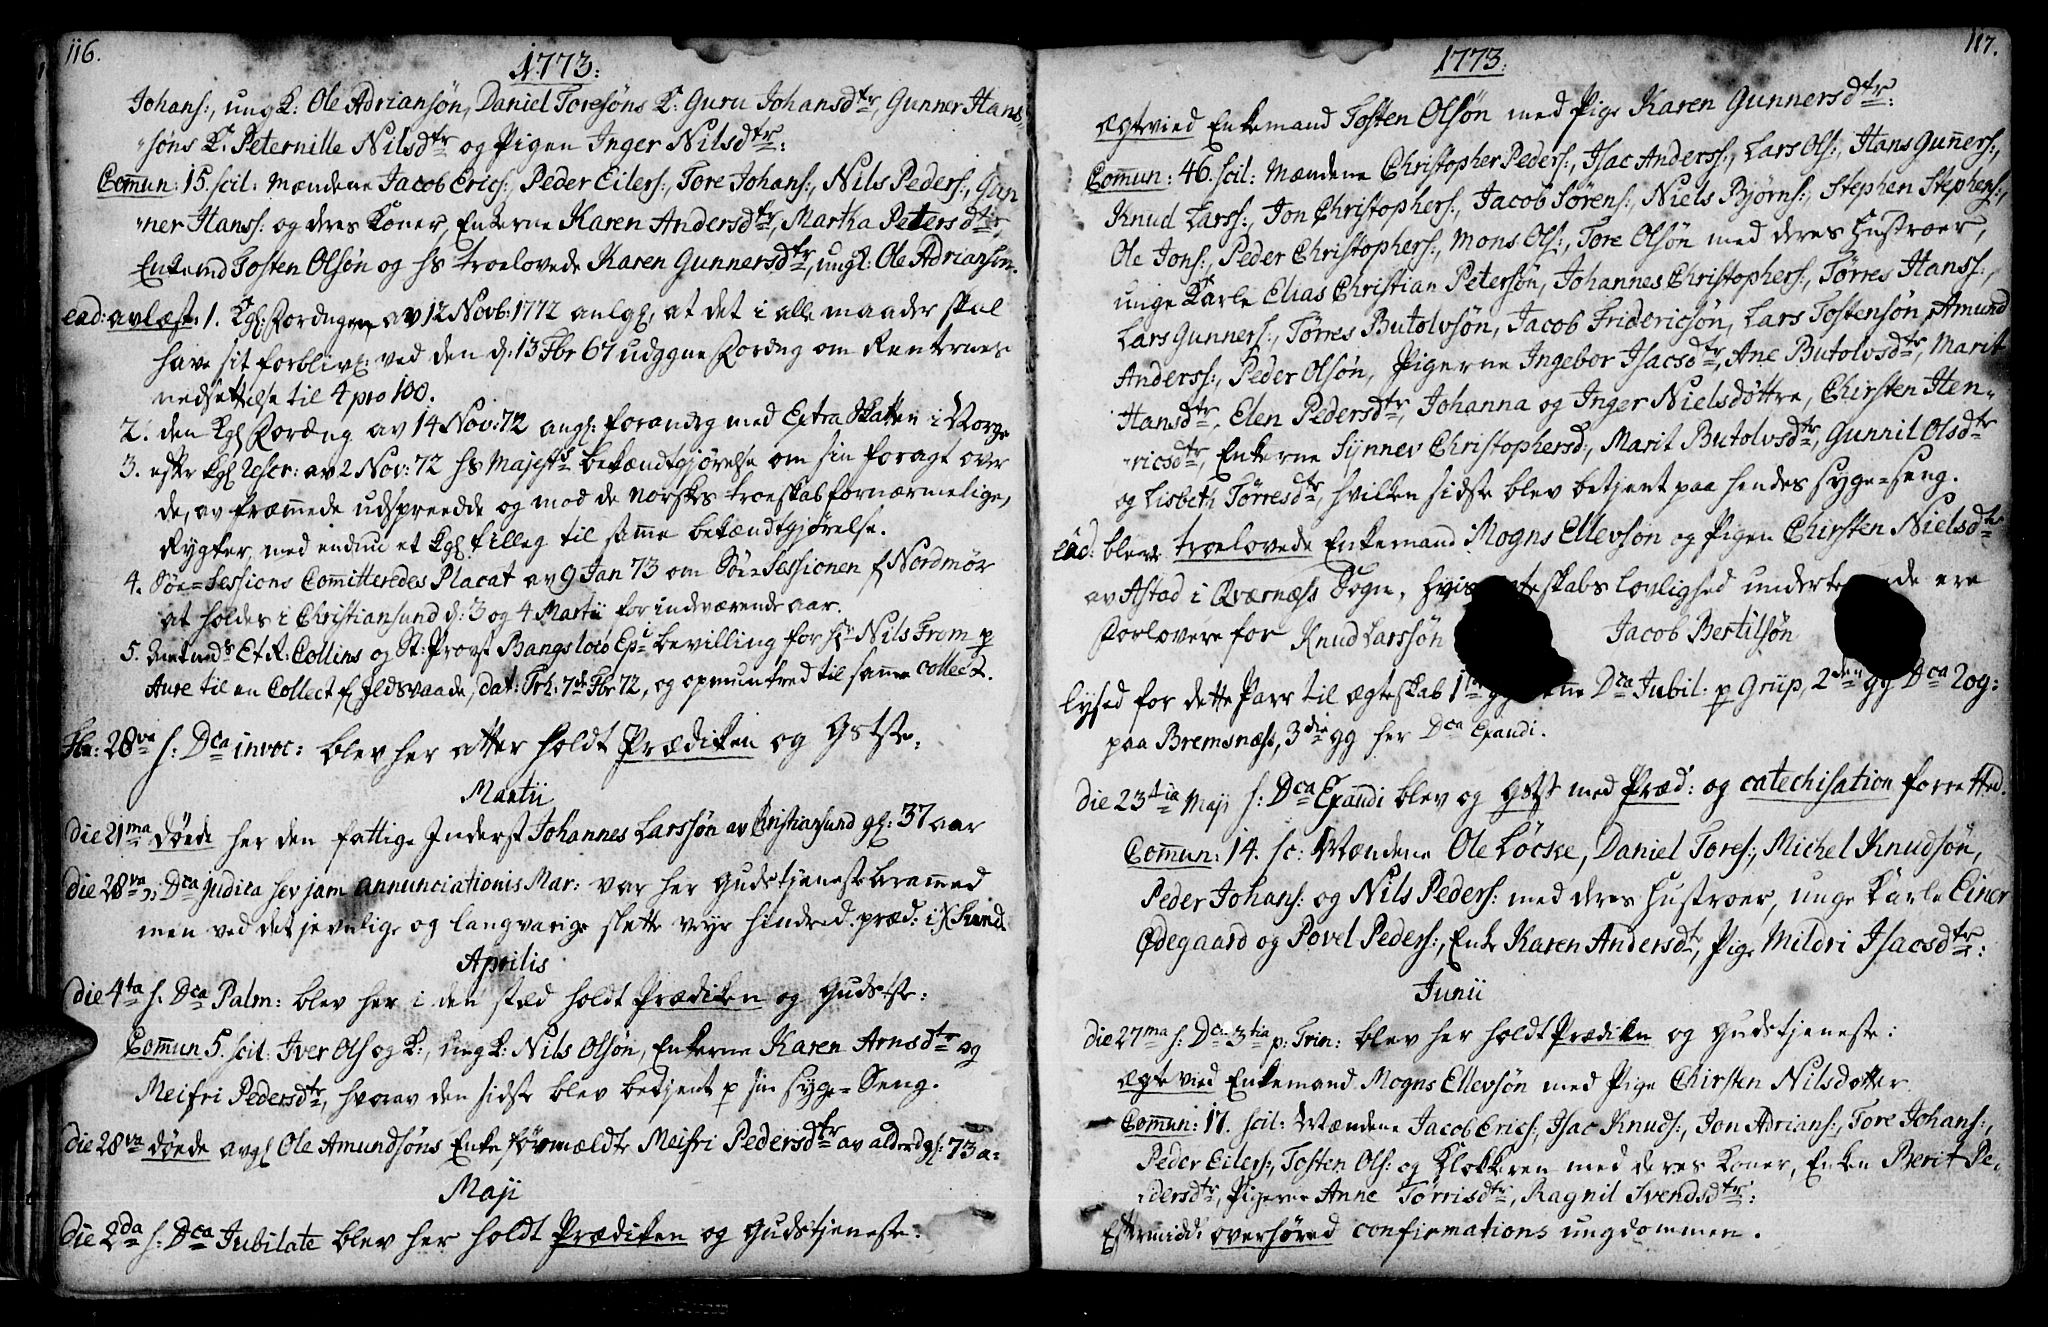 116.
1773:
Johans:, ung K: Ole Adriansøn, Daniel Toresøns K: Guru Johansdtr, Gunner Hans-
søns K: Peternille Nilsdtr og Pigen Inger Nilsdtr:
Com̄un: 15. scil: Mændene Jacob Erics:, Peder Eilers:, Tore Johans:, Nils Peders:, Gun
ner Hanss: og deres Koner, Enkerne Karen Andersdtr, Martha Petersdtr,
Enkemd Tosten Olsøn og hs troelovede Karen Gunnersdtr, ungk: Ole Adriansøn.
ead: avlæst. 1. Kgl: Fordngen av 12 Novb: 1772 anlg, at det i alle maader skal
have sit forblivz ved den d: 13 Fbr 67 udggne Fordng om Renternes
nedsættelse til 4 pro 100.
2. den Kgl Fordæng av 14 Nov: 72 angl: forandrg med Extra Skatten i Norge
3. efter kgl Rescr: av 2 Nov: 72 hs Majestts bekændtgjørelse om sin foragt over
de, av fræm̄ede udspreedde og mod de norskes troeskab fornærmelige,
Rygter, med endnu et kgl tilleg til sam̄e bekændtgjørelse.
4. Søe-Sessions Com̄itteredes Placat av 9 Jan 73 om Søe-Sessionen f Nordmør
at holdes i Christiansund d: 3 og 4 Martii for indværende aar.
5. Amtmds Et.R: Collins og St: Provst Bangs loco Epi bevilling for Hr Nils From p
Aure til en Collect f Ildsvaade, dat: Trh: 7de Fbr 72, og opmuntred til sam̄e collect.
Fbr: 28va s: Dca invoc: blev her atter holdt Prædiken og Gstste.
Martii
die 21ma døede her den fattige Inderst Johannes Larssøn av Christiansund gl: 37 aar
die 28va s: Dca Judica sev jam annunciationis Mar: var her Gudstjeneste bram̄ed
men ved det jevnlige og langvarige slette veyr hindred. præd: i X Sund
Aprilis
die 4ta s: Dca Palm: blev her i den sted holdt Prædiken og Gudstste:
Com̄un 5. scil: Iver Ols og K:, ung k: Nils Olsøn, Enkerne Karen Arnsdtr og
Meifri Pedersdtr, hvorav den sidste blev betjent p sin Syge-Seng.
die 28va døede avgl Ole Amundsøns Enke Meifri Pedersdtr av alderd gl: 73 a:
Maji
die 2da s: Dca Jubilate blev her holdt Prædiken og Gudstjeneste:
117.
1773:
ægtevied Enkemand Tosten Olsøn med Pige Karen Gunnersdtr:
Com̄un: 46. scil: Mændene Christopher Peders:, Isac Anderss:, Lars Ols:, Hans Gun̄ers:,
Knud Larss:, Jon Christophers:, Jacob Sørens:, Niels Bjørns:, Stephen Stephens:,
Ole Jons:, Peder Christophers:, Mons Ols:, Tore Olsøn med deres Hustroer,
unge Karle Elias Christian Petersøn, Johannes Christophers:, Tørres Hanss:,
Lars Gunners:, Tørres Butolvsøn, Jacob Fridericsøn, Lars Tostensøn, Amund
Anderss:, Peder Olsøn, Pigerne Ingebor Isacsdtr, Ane Butolvsdtr, Marit
Hansdtr, Elen Pedersdtr, Johanna og Inger Nielsdøttre, Chirsten Hen-
ricsdtr, Enkerne Synnev Christophersd:, Marit Butolvsdtr, Gunnil Olsdtr
og Lisbeth Tørresdtr, hvilken sidste blev betjent paa hendes Syge-seng.
ead: bleve troelovede Enkemand Mogns Ellevsøn og Pigen Chirsten Nielsdtr
av Astad i Qværnæss Sogn, hvis skabs lovlighed underte ere
Forlovere for Knud Larssøn Jacob Bertilsøn
lysed for dette Parr til ægteskab 1ste Dca Jubil: p Griip, 2den gg Dca 2 og:
paa Bremsnæss, 3die gg her Dca Exaudi.
die 23tia Maji s: Dca Exaudi blev og Gstst med Præd: og catechisation forretted.
Com̄un: 14. sc: Mændene Ole Løcke, Daniel Tores:, Michel Knudsøn,
Peder Johans: og Nils Peders: med deres Hustroer, unge Karle Einer
Ødegaard og Povel Peders:, Enke Karen Andersdtr, Pige Mildri Isacsdtr:
Junii
die 27ma s: Dca 3tia p: Trin: blev her holdt Prædiken og Gudstjeneste:
ægtevied Enkemand Mogns Ellevsøn med Pige Chirsten Nilsdotter
Com̄un: 17. scil: Mændene Jacob Erics:, Isac Knuds:, Jon Adrians:, Tore Johans:,
Peder Eilers:, Tosten Ols: og Klokkeren med deres Koner, Enken Berit Pe-
dersdtr, Pigerne Anne Tørrisdtr, Ragnil Svendsdtr:
Eftermidd: overhøred confirmations ungdommen.